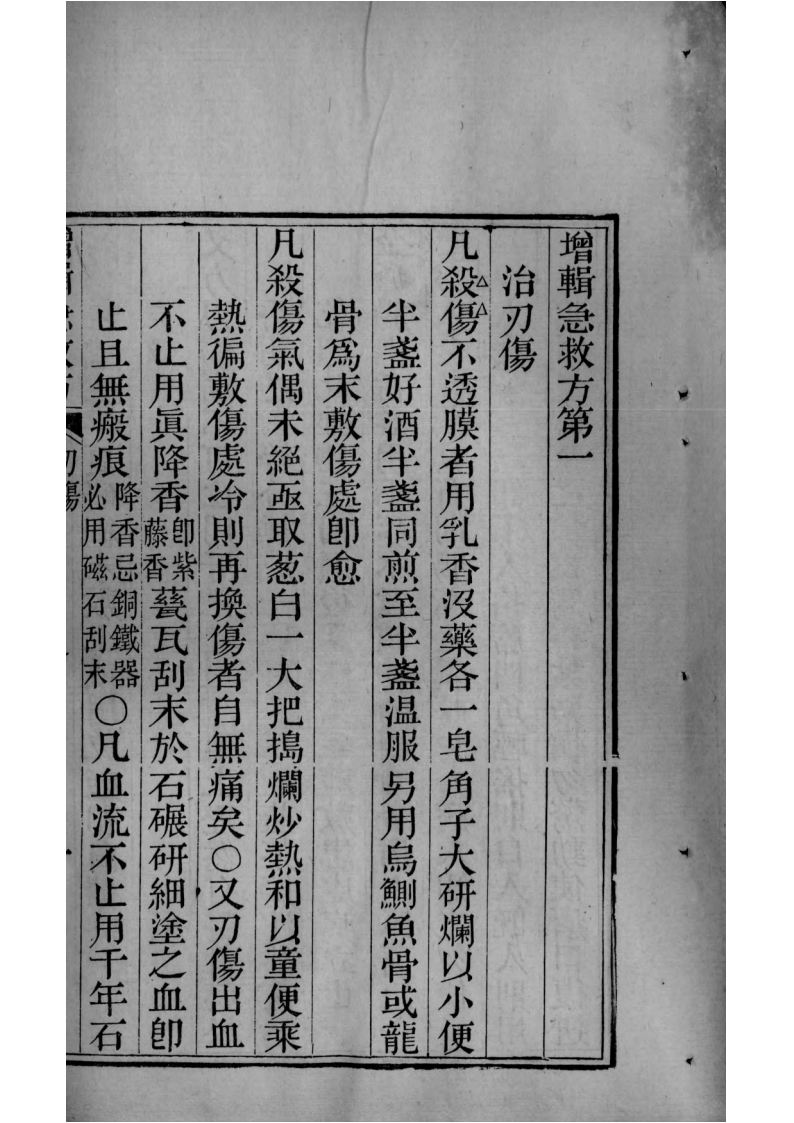 增輯急救方第一
治刃傷
凡殺傷不透膜者用乳香沒藥各一皂角子大研爛以小便
半盞好酒半盞同煎至半盞温服另用烏鰂魚骨或龍
骨爲末敷傷處卽愈
凡殺傷氣偶未絕亟取葱白一大把搗爛炒熱和以童便乘
熱徧敷傷處冷則再換傷者自無痛矣〇又刃傷出血
不止用眞降香卽紫藤香甆瓦刮末於石碾研細塗之血卽
止且無瘢痕降香忌銅鐵器必用磁石刮末〇凡血流不止用千年石
增輯急救方 刃傷 一